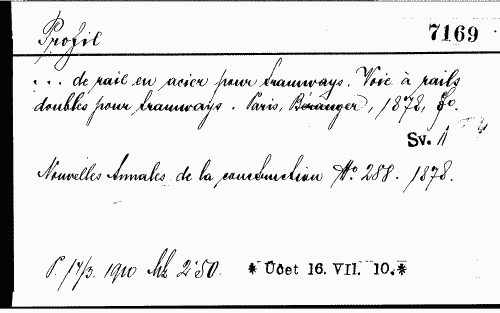 Profil 7169
... de rail en acier pour tramways. Voie à rails
doubles pour tramways. Paris, Béranger, 1878, fo.
Sv. A
Nouvelles Annales de la construction No. 288. 1878.
P. 17/3. 1910 Mk 2.50. * Účet 16. VII. 10.*